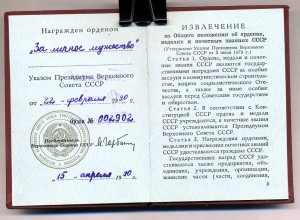 Награжден орденом
"За личное мужество"
Указом Президиума Верховного
Совета СССР
от „22“ февраля 1990 г.
Орден № 002902
Верховного
Совета СССР
„15“ апреля 1990 г.
ИЗВЛЕЧЕНИЕ
из Общего положения об орденах,
медалях и почетных званиях СССР
(Утверждено Указом Президиума Верховного
Совета СССР от 3 июля 1979 г.)
Статья 1. Ордена, медали и почетные
звания СССР являются государственными
наградами СССР за особые заслуги
в коммунистическом строительстве,
защите социалистического
Отечества, а также за иные особые заслуги
перед Советским государством
и обществом.
Статья 2. В соответствии с Конституцией
СССР ордена и медали
СССР учреждаются, а почетные звания
СССР устанавливаются Президиумом
Верховного Совета СССР.
Статья 3. Награждения орденами,
медалями и присвоения почетных званий
СССР удостоверяются гражданам СССР.
Государственных наград СССР удостаиваются
также предприятия, объединения,
учреждения, организации,
воинские части (соединения,
3